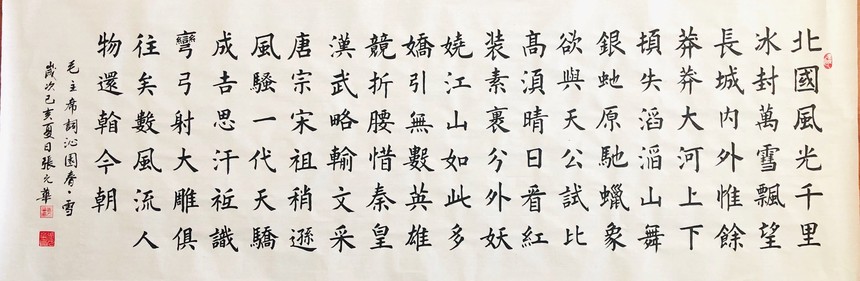 北國風光千里
冰封萬雪飄望
長城內外惟餘
莽莽大河上下
頓失滔滔山舞
銀虵原馳蠟象
欲與天公試比
高湏晴日㸔紅
裝素裹兮外妖
嬈江山如此多
嬌引無數英雄
競折腰惜秦皇
漢武略輸文采
唐宗宋祖稍遜
風騷一代天驕
成吉思汗祗識
彎弓射大雕俱
往矣數風流人
物還𥉼今朝
毛主席詞沁園春·雪
歲次己亥夏日張元華